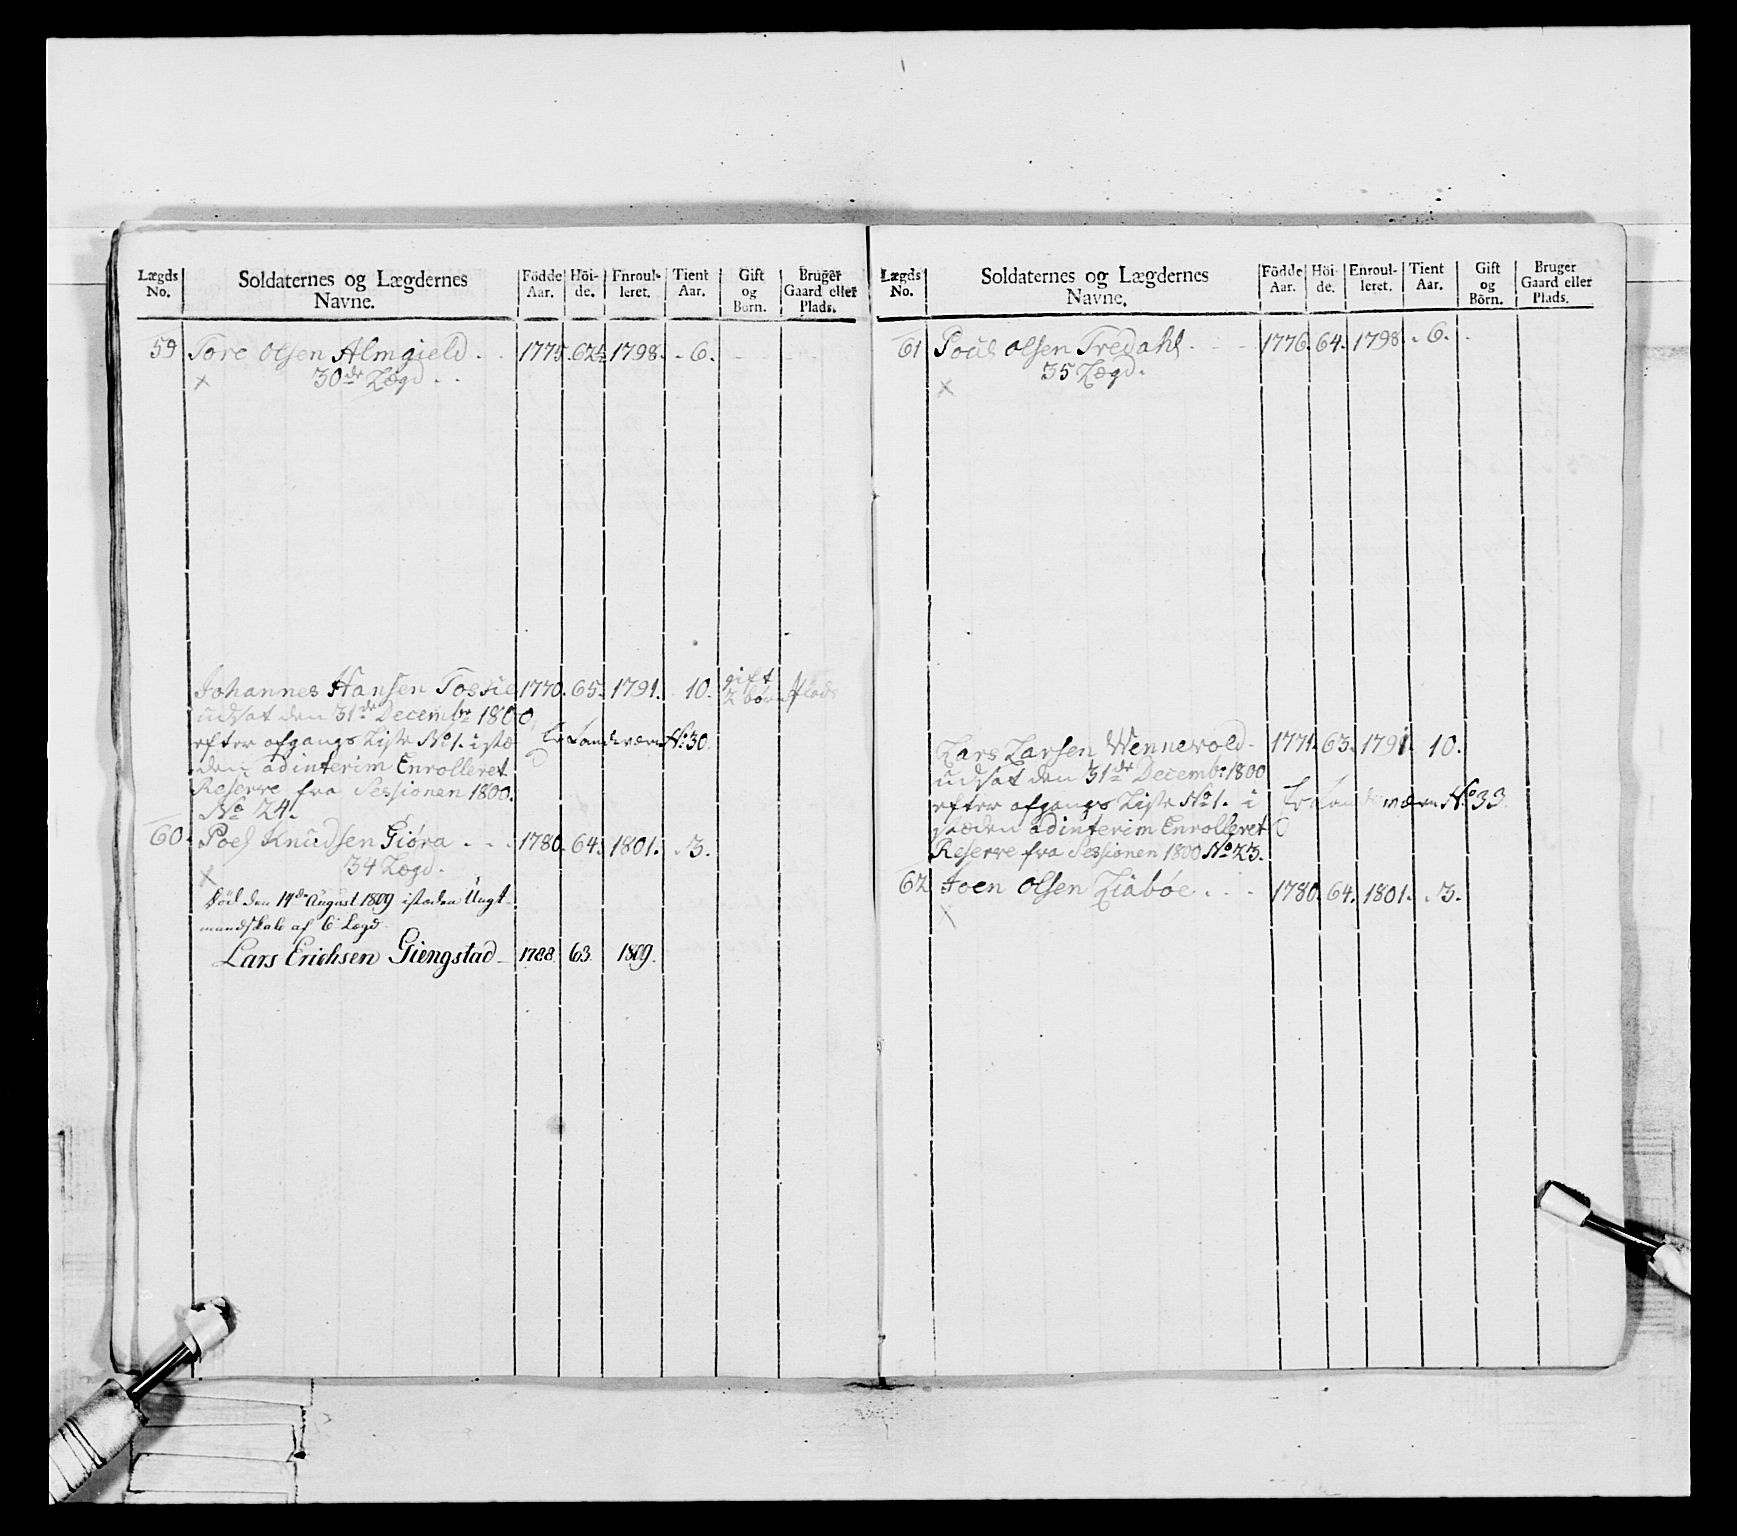 Lægds No. Soldaternes og Lægdernes Navne. Födde Aar. Höi-de. Enroul-leret. Tient Aar. Gift og Börn. Bruger Gaard eller Plads.
59 Tore Olsen Almgield . 1775. 62½ 1798. - 6.
× 30de Lægd . .
Johannes Hansen 1770. 65. 1791. 10. gift 2 börn Plads
udsat den 31de Decembr 1800
efter afgangs Liste No 1. i stæ Landeværn No 30.
den adinterim Enrolleret
Reserve fra Sessionen 1800.
No 24.
60. Poel Knudsen Giøra . . . 1780. 64. 1801. . 3.
× 34 Lægd.
Död den 14de August 1809 isteden Ungt
mandskab af 6 Lægd
Lars Erichsen Giengstad 1788 63 1809.
Lægds No. Soldaternes og Lægdernes Navne. Födde Aar. Höi-de. Enroul-leret. Tient Aar. Gift og Börn. Bruger Gaard eller Plads.
61 Poul Olsen Tredahl . 1776. 64. 1798. . 6.
× 35 Lægd.
Lars Larsen Wennevold - 1771. 63. 1791. 10.
udsat den 31de Decembr 1800
efter afgangs Liste No 1. i Landeværn No 33.
stæden adinterim Enrolleret
Reserve fra Sessionen 1800 No 23.
62 Joen Olsen Liabøe . . 1780. 64. 1801. . 3.
×